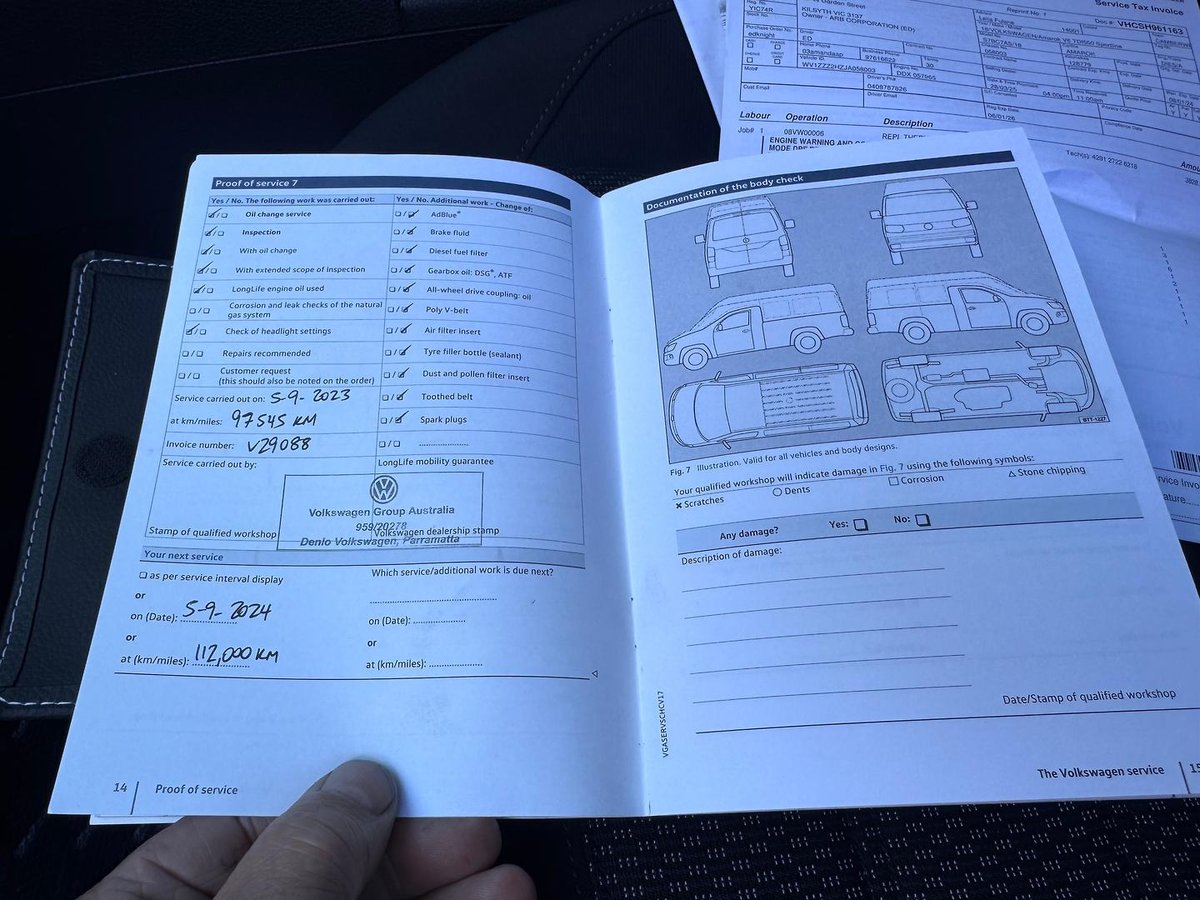 Proof of service 7
Yes / No. The following work was carried out:
Oil change service
Inspection
With oil change
With extended scope of inspection
LongLife engine oil used
Corrosion and leak checks of the natural
gas system
Check of headlight settings
Repairs recommended
Customer request
(this should also be noted on the order)
Service carried out on: 5-9-2023
at km/miles: 97545 KM
Invoice number: V29088
Yes / No. Additional work - Change of:
AdBlue®
Brake fluid
Diesel fuel filter
Gearbox oil: DSG®, ATF
All-wheel drive coupling: oil
Poly V-belt
Air filter insert
Tyre filler bottle (sealant)
Dust and pollen filter insert
Toothed belt
Spark plugs
Service carried out by:
LongLife mobility guarantee
Volkswagen Group Australia
959/20278
Denlo Volkswagen, Parramatta
Stamp of qualified workshop
Volkswagen dealership stamp
Your next service
as per service interval display
or
on (Date): 5-9-2024
or
at (km/miles): 112,000 KM
Which service/additional work is due next?
on (Date):
or
at (km/miles):
14
Proof of service
Documentation of the body check
BTT-1227
Fig. 7 Illustration. Valid for all vehicles and body designs.
Your qualified workshop will indicate damage in Fig. 7 using the following symbols:
× Scratches ○ Dents □ Corrosion △ Stone chipping
Any damage? Yes: No:
Description of damage:
Date/Stamp of qualified workshop
VGASERVSCHCV17
The Volkswagen service
Service Tax Invoice
Reprint No. 1
Doc #: VHCSH961163
Garden Street
KILSYTH VIC 3137
Owner - ARB CORPORATION (ED)
Reg No.
YIC74R
Stock No.
Purchase Order No.
edknight
Driver
ED
Home Phone
Business Phone
97616622
30
WV1ZZZ2HZJA058003
DDX 057565
Mob#
Driver's Ph#
0408787826
Cust Email
Driver Email
28/03/25
04:00pm
11:00am
Reg Exp Date
06/01/26
Compliance Date
Privacy Code
058003
AMAROK
128779
Labour Operation Description
Job# 1
08VW00006
ENGINE WARNING AND
Tech(s): 4291 2722 6218